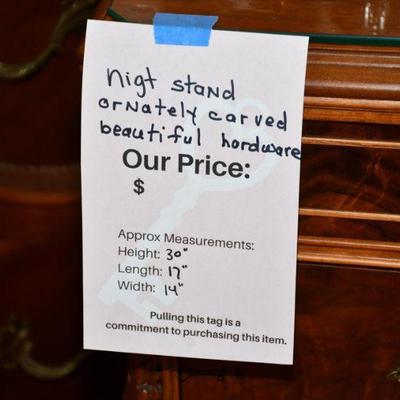 nigt stand
ornately carved
beautiful hordware
Our Price:
$
Approx Measurements:
Height: 30"
Length: 17"
Width: 14"
Pulling this tag is a
commitment to purchasing this item.